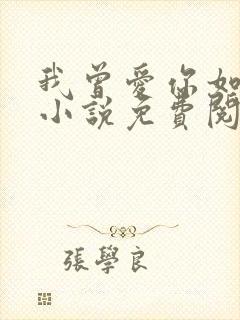 我曾愛你如
小說免費閱
張學良